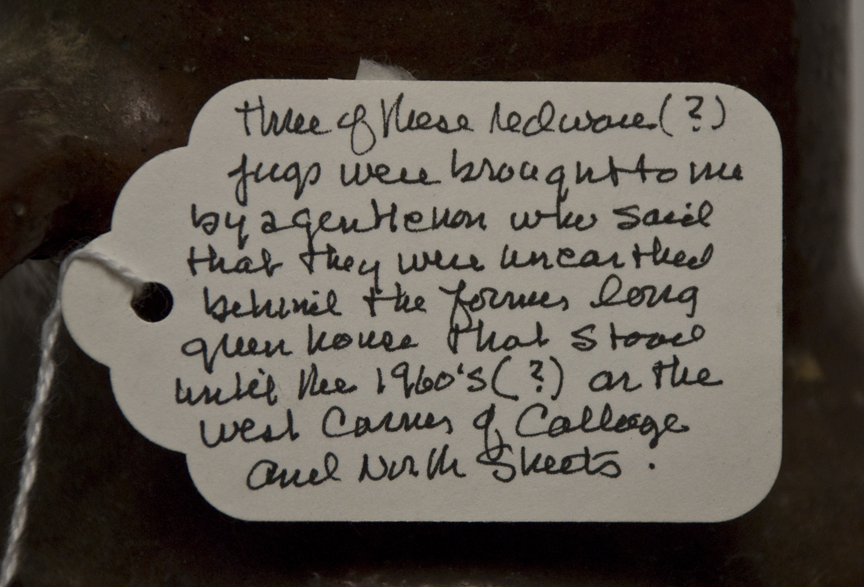 three of these redware(?)
jugs were brought to me
by a gentleman who said
that they were unearthed
behind the former long
green house that stood
until the 1960's(?) on the
west corner of College
and North Streets.